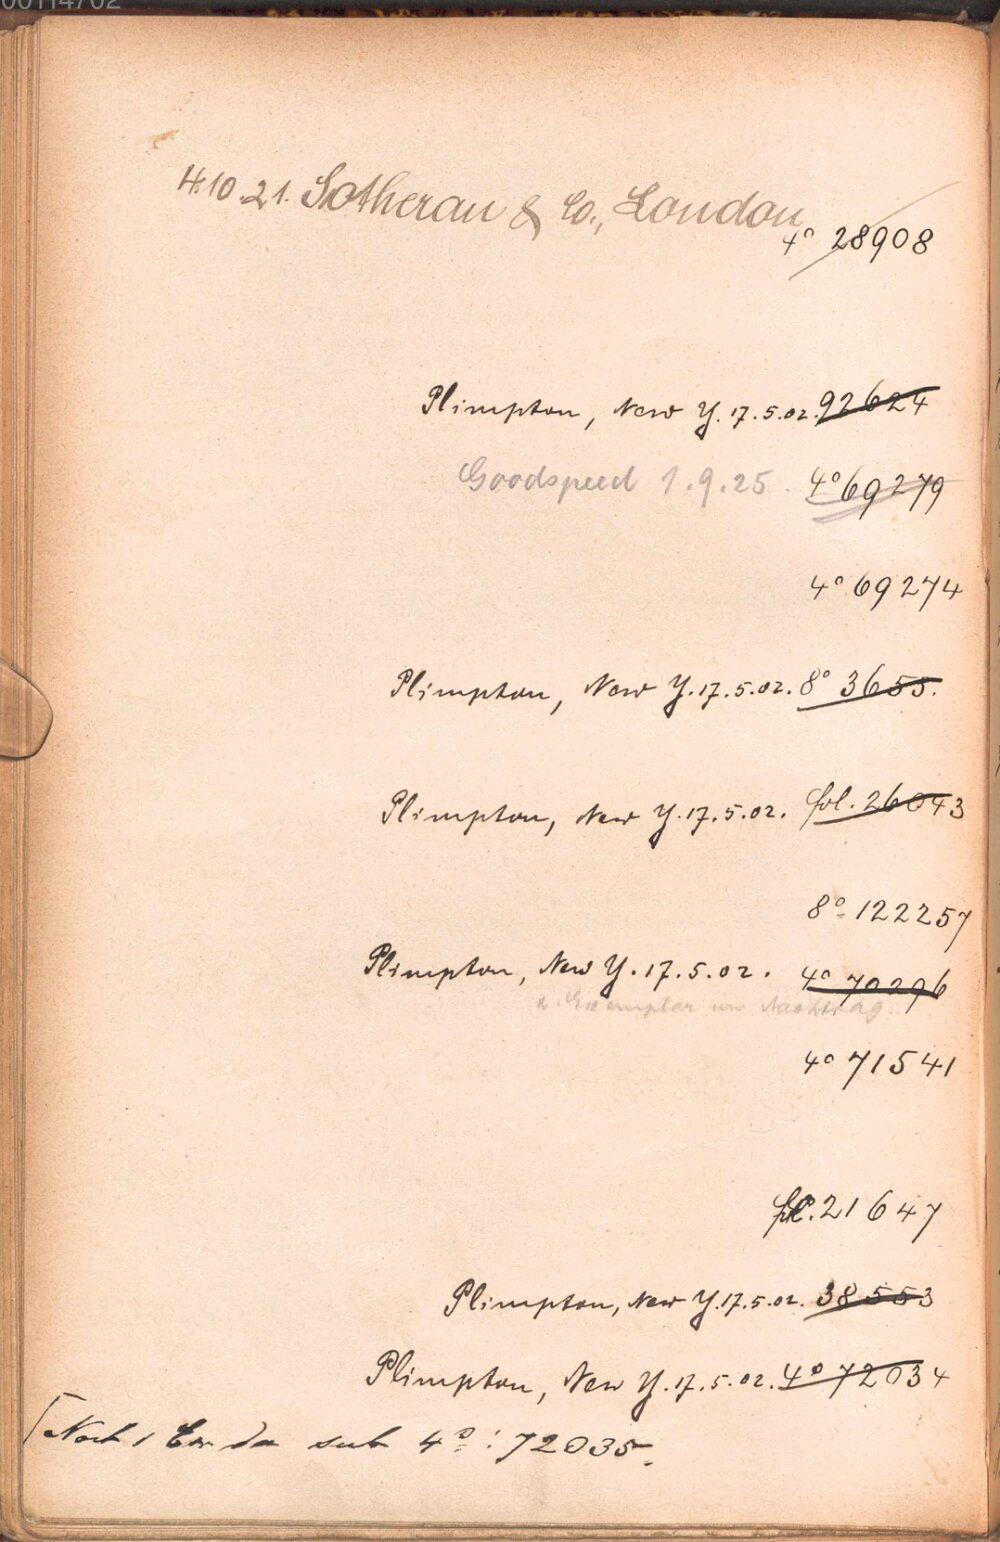 00114702
4.10.21. Sotheran & Co., London
4° 28908
Plimpton, New Y. 17.5.02. 92624
Goodspeed 1.9.25. 4° 69279
4° 69274
Plimpton, New Y. 17.5.02. 8° 3655.
Plimpton, New Y. 17.5.02. fol. 26043
8° 122257
Plimpton, New Y. 17.5.02. 4° 70296
2. Exemplar im Nachtrag.
4° 71541
fol. 21647
Plimpton, New Y. 17.5.02. 38553
Plimpton, New Y. 17.5.02. 4° 72034
[Noch 1 Ex. da sub 4°: 72035.